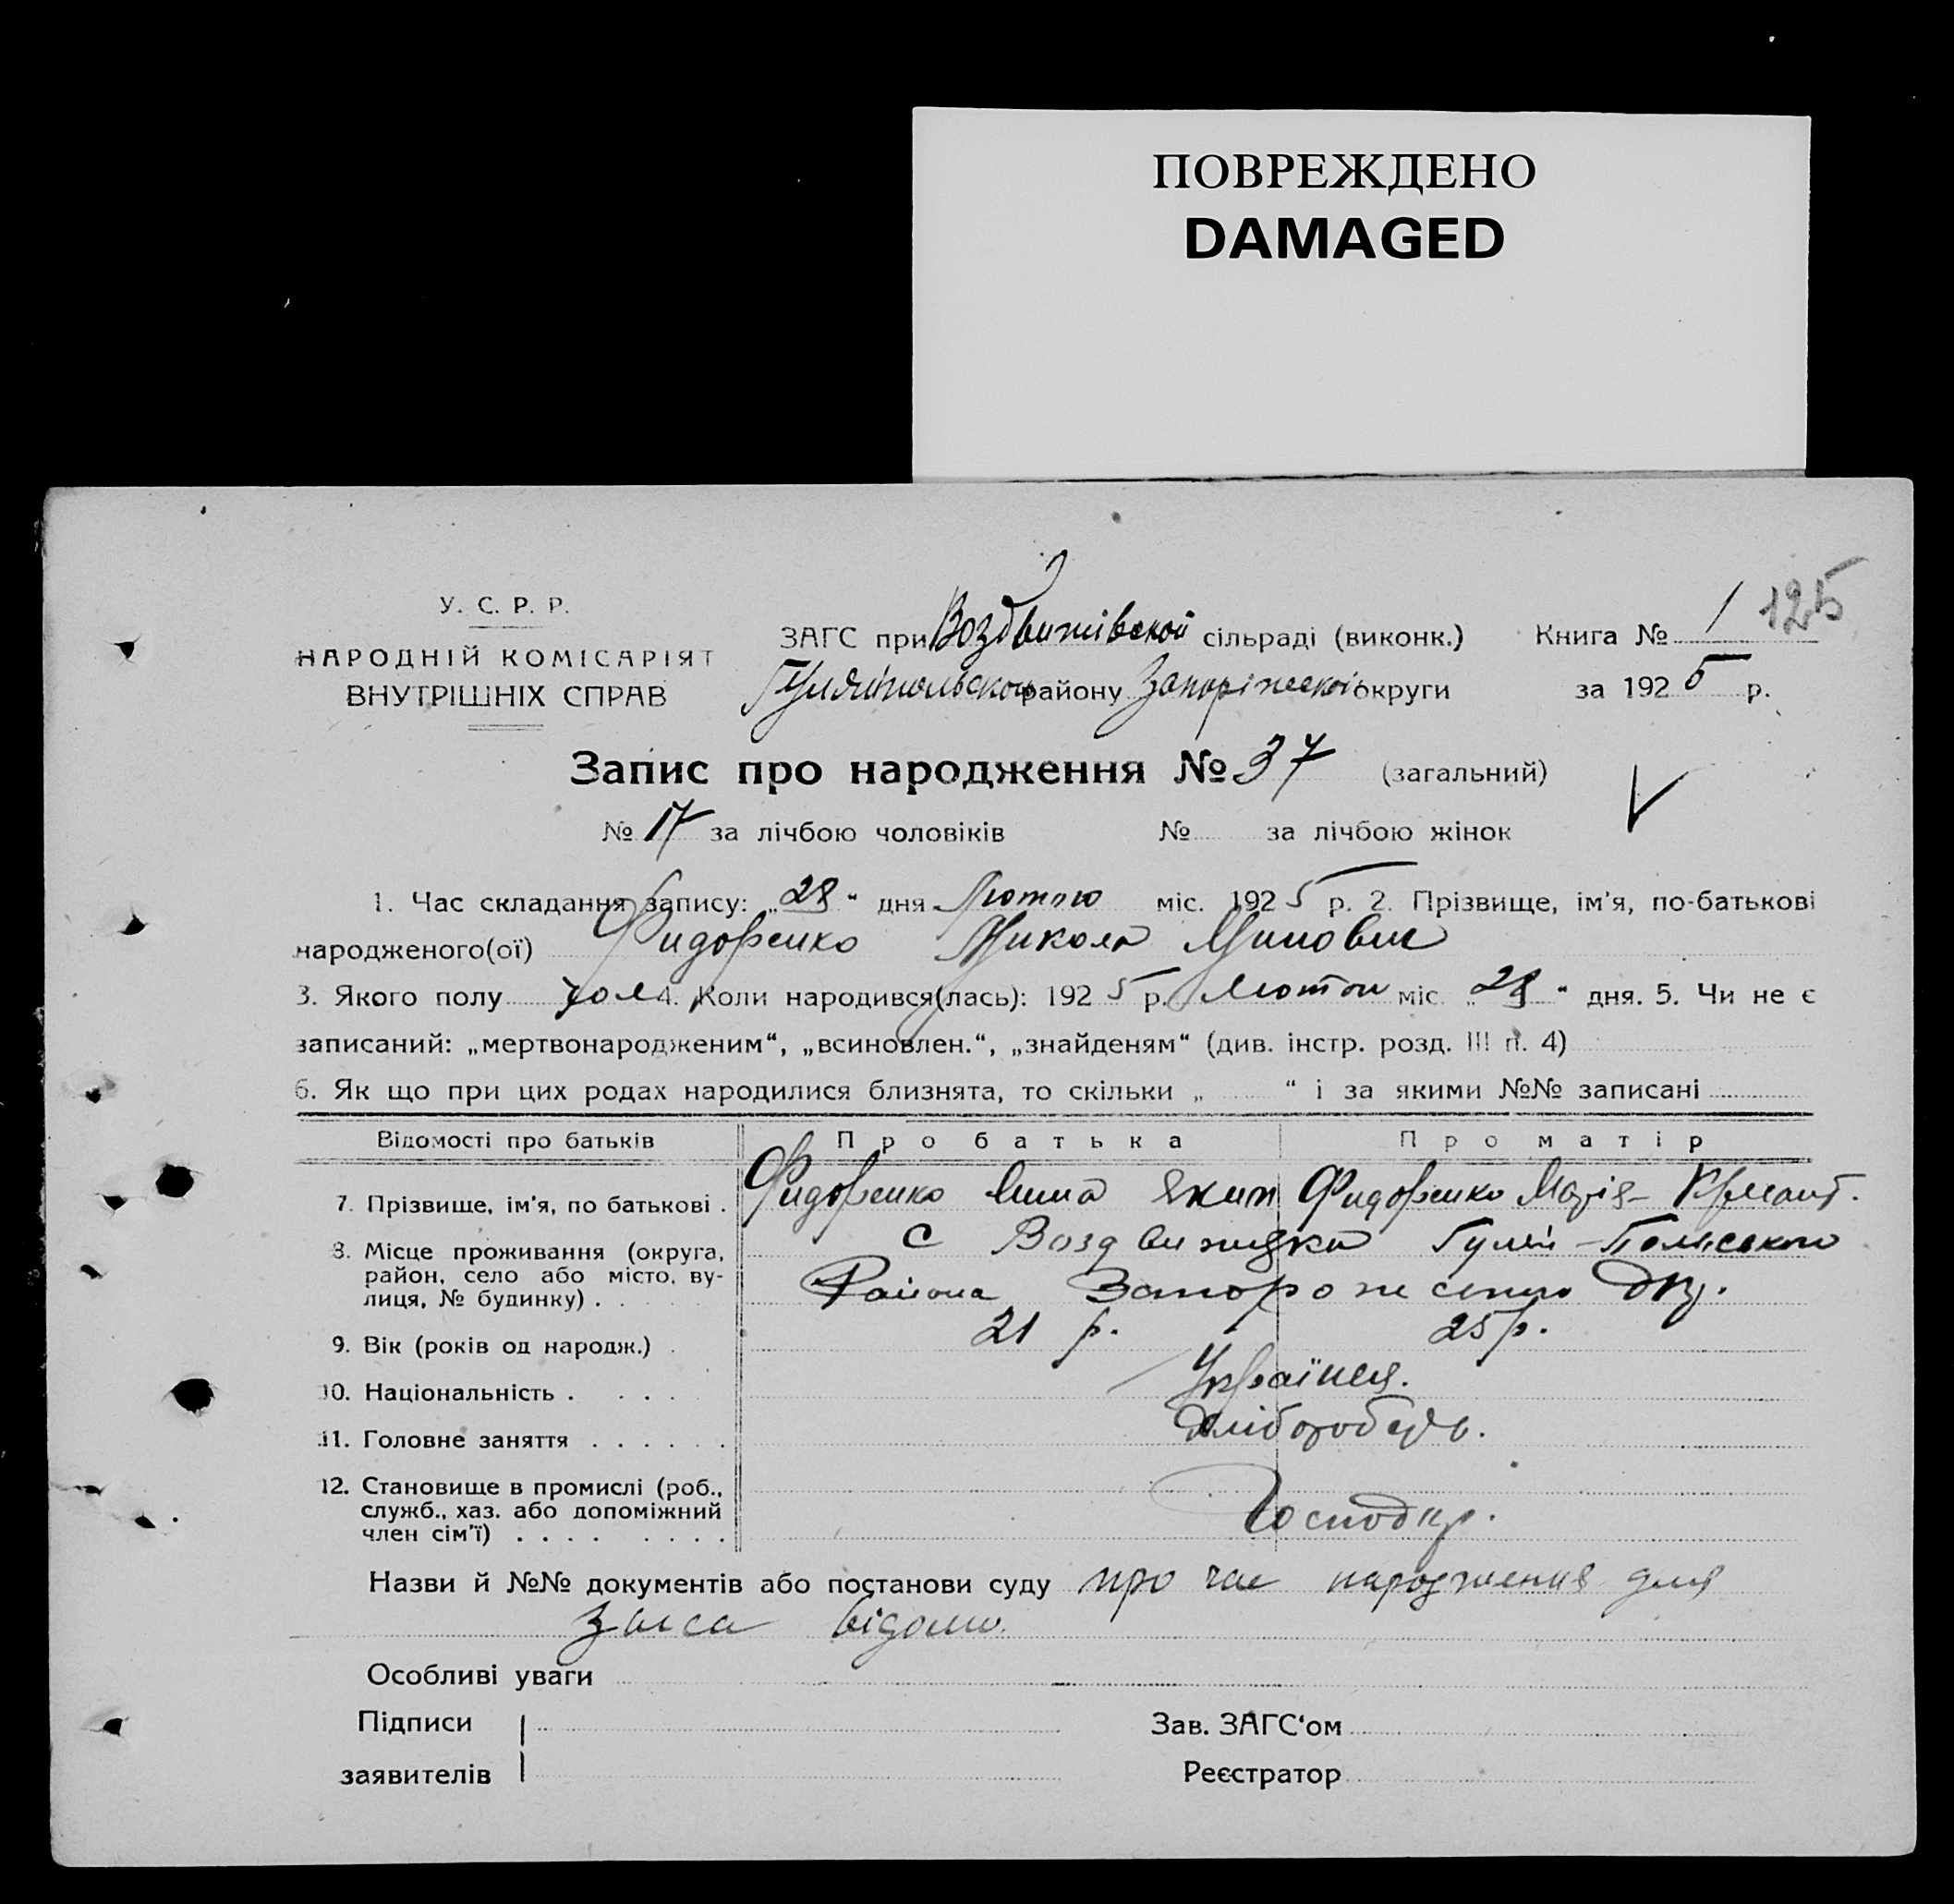 ПОВРЕЖДЕНО
DAMAGED
У. С. Р. Р.
НАРОДНІЙ КОМІСАРІЯТ
ВНУТРІШНІХ СПРАВ
ЗАГС при Воздвижівской сільраді (виконк.)
районy Запоріжської округи
Книга № 1 125
за 1925 р.
Запис про народження № 37 (загальний)
№ 17 за лічбою чоловіків № за лічбою жінок
1. Час складання запису: „28“ дня Лютого міс. 1925 р. 2. Прізвище, ім'я, по-батькові
народженого(ої) Фидоренко Микола Минович
3. Якого полу чол 4. Коли народився(лась): 1925 р. Лютого міс. „28“ дня. 5. Чи не є
записаний: „мертвонародженим“, „всиновлен.“, „знайденям“ (див. інстр. розд. III п. 4)
6. Як що при цих родах народилися близнята, то скільки „ “ і за якими №№ записані
Відомості про батьків Про батька Про матір
7. Прізвище, ім'я, по батькові . Фидоренко Яким Фидоренко Марія
8. Місце проживання (округа, район, село або місто, ву-
лиця, № будинку) . . с Воздвижка Гуляй-Польского
Района Запорожского Окр.
9. Вік (років од народж.) . 21 р. 25 р.
10. Національність . . . . Українця.
11. Головне заняття . . . . . . Хлібороб
12. Становище в промислі (роб.,
служб., хаз. або допоміжний
член сім'ї) . . . . . . . . Господар.
Назви й №№ документів або постанови суду про час народження для
загса відомо.
Особливі уваги
Підписи
заявителів
Зав. ЗАГС'ом
Реєстратор